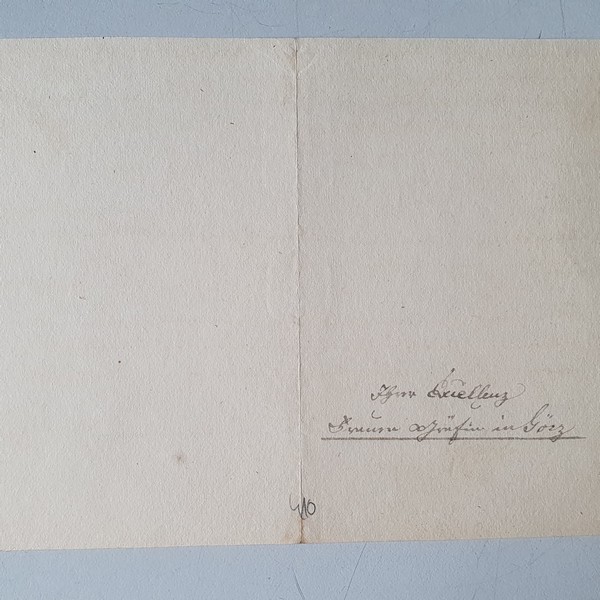 Ihrer Excellenz
Frauen Gräfin in Görz
410